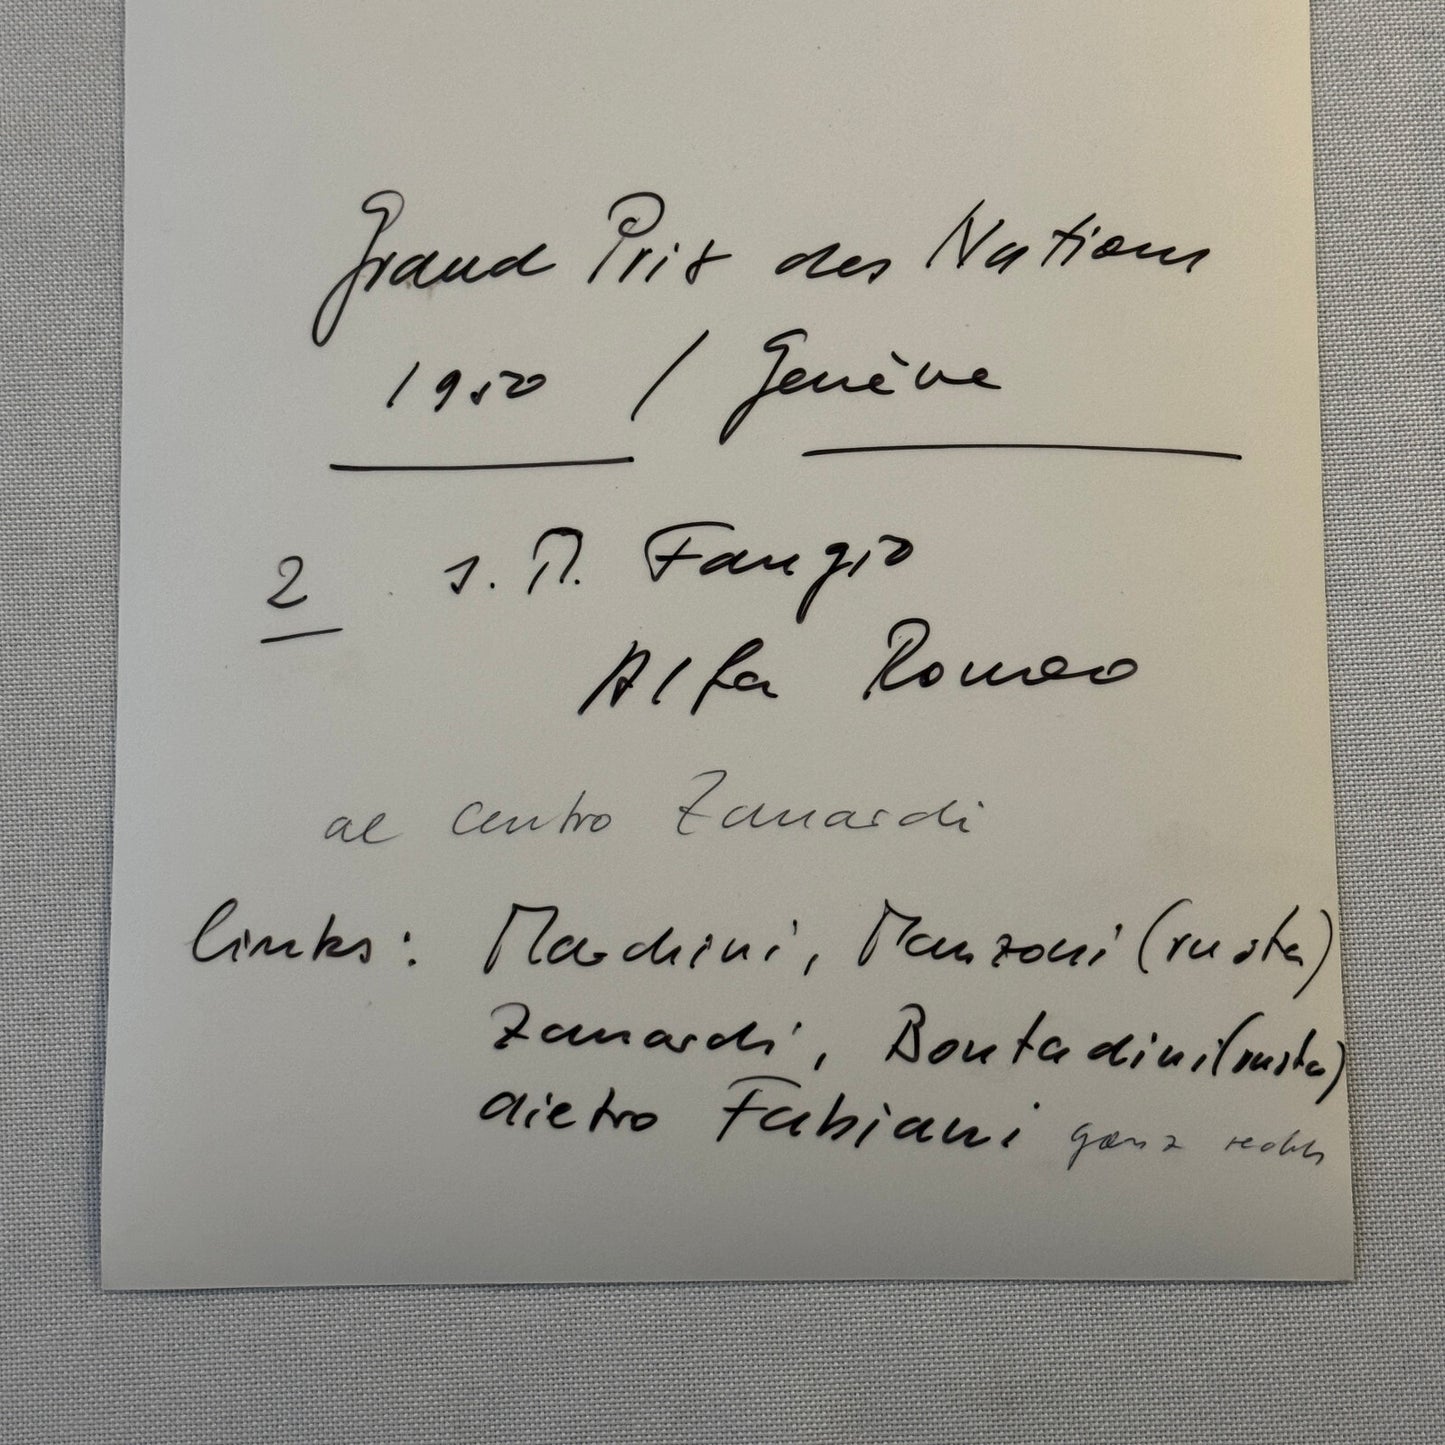 Grand Prix des Nations
1950 / Genève
2 J. M. Fangio
Alfa Romeo
al centro Zanardi
links: Marchini, Manzoni (ruota)
Zanardi, Bontadini (ruota)
dietro Fabiani ganz rechts